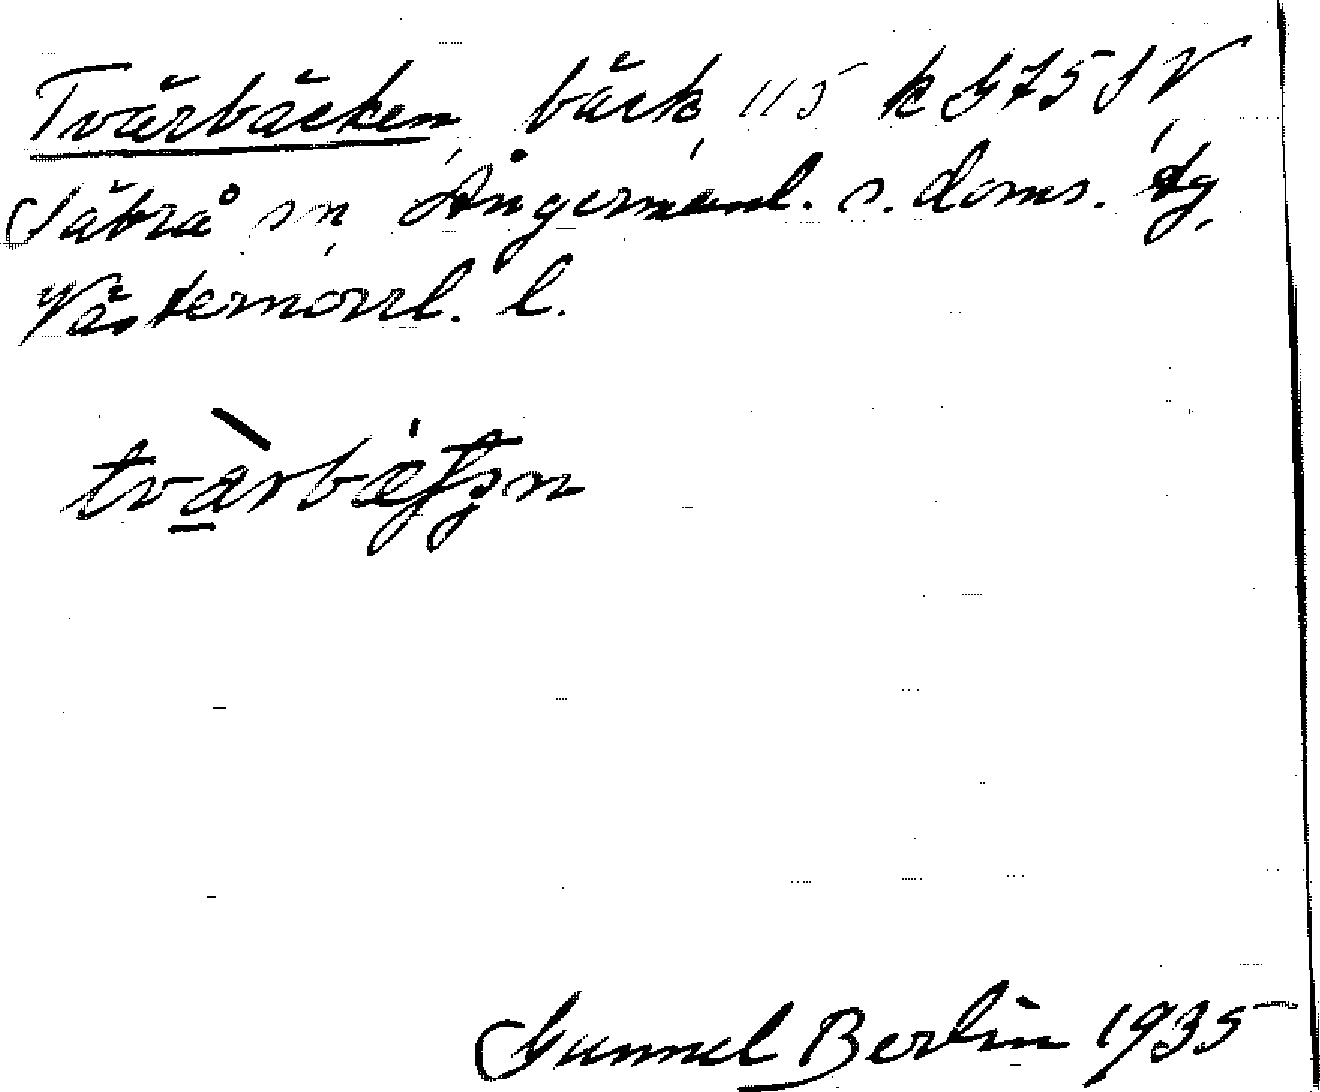 Tvärbäcken, bäck, 115 k G75 SV,
Säbrå sn, Ångermanl. s. doms. tg,
Västernorrl. l.
Gunnel Berlin 1935